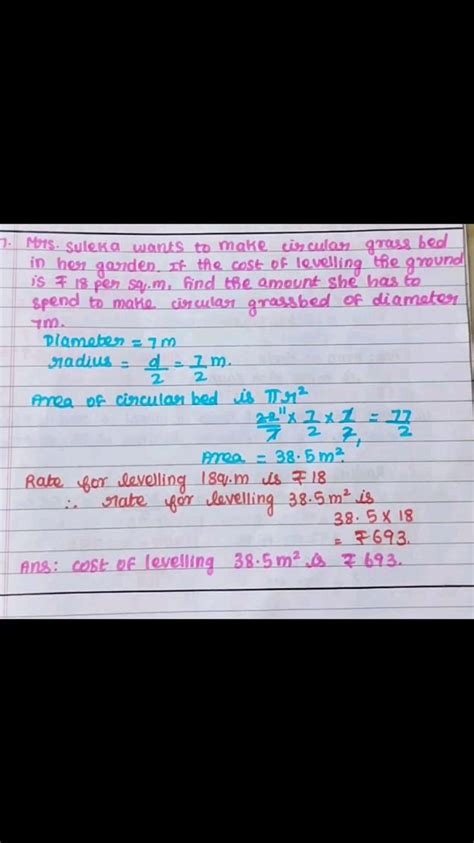 7. Mrs. Suleka wants to make circular grass bed
in her garden. If the cost of levelling the ground
is ₹ 18 per sq.m, find the amount she has to
spend to make circular grassbed of diameter
7m.
Diameter = 7m
radius = d/2 = 7/2 m.
Area of circular bed is πr²
22/7 11 × 7/2 × 7/2, = 77/2
Area = 38.5m²
Rate for levelling 1sq.m is ₹18
∴ rate for levelling 38.5m² is
38.5 × 18
= ₹693.
Ans: cost of levelling 38.5m² is ₹693.